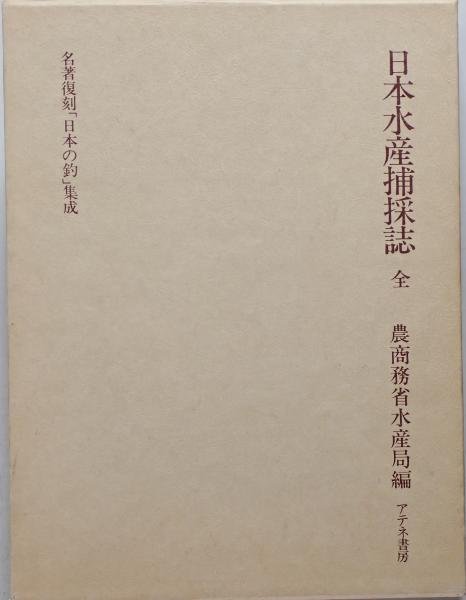 日本水産捕採誌 全 農商務省水産局編 アテネ書房
名著復刻「日本の釣」集成